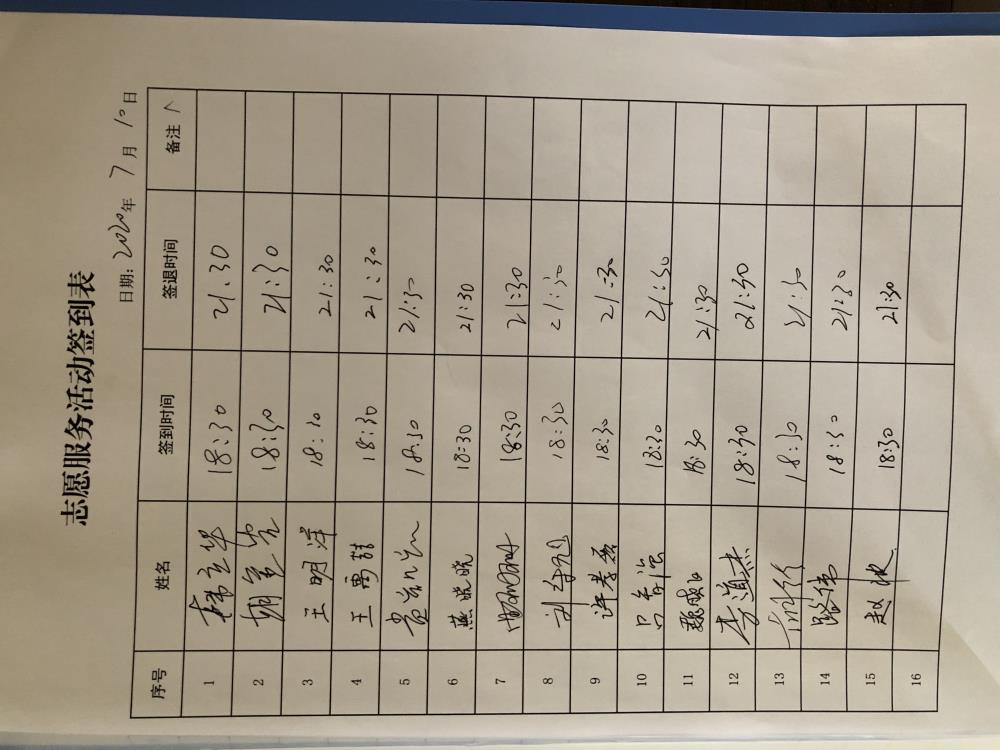 志愿服务活动签到表
日期: 2020 年 7 月 10 日
序号 姓名 签到时间 签退时间 备注
1 18:30 21:30
2 18:30 21:30
3 王明洋 18:30 21:30
4 王禹喆 18:30 21:30
5 18:30 21:30
6 燕晓晓 18:30 21:30
7 18:30 21:30
8 18:30 21:30
9 许孝磊 18:30 21:30
10 18:30 21:30
11 18:30 21:30
12 李道杰 18:30 21:30
13 18:30 21:30
14 路伟 18:30 21:30
15 赵 18:30 21:30
16